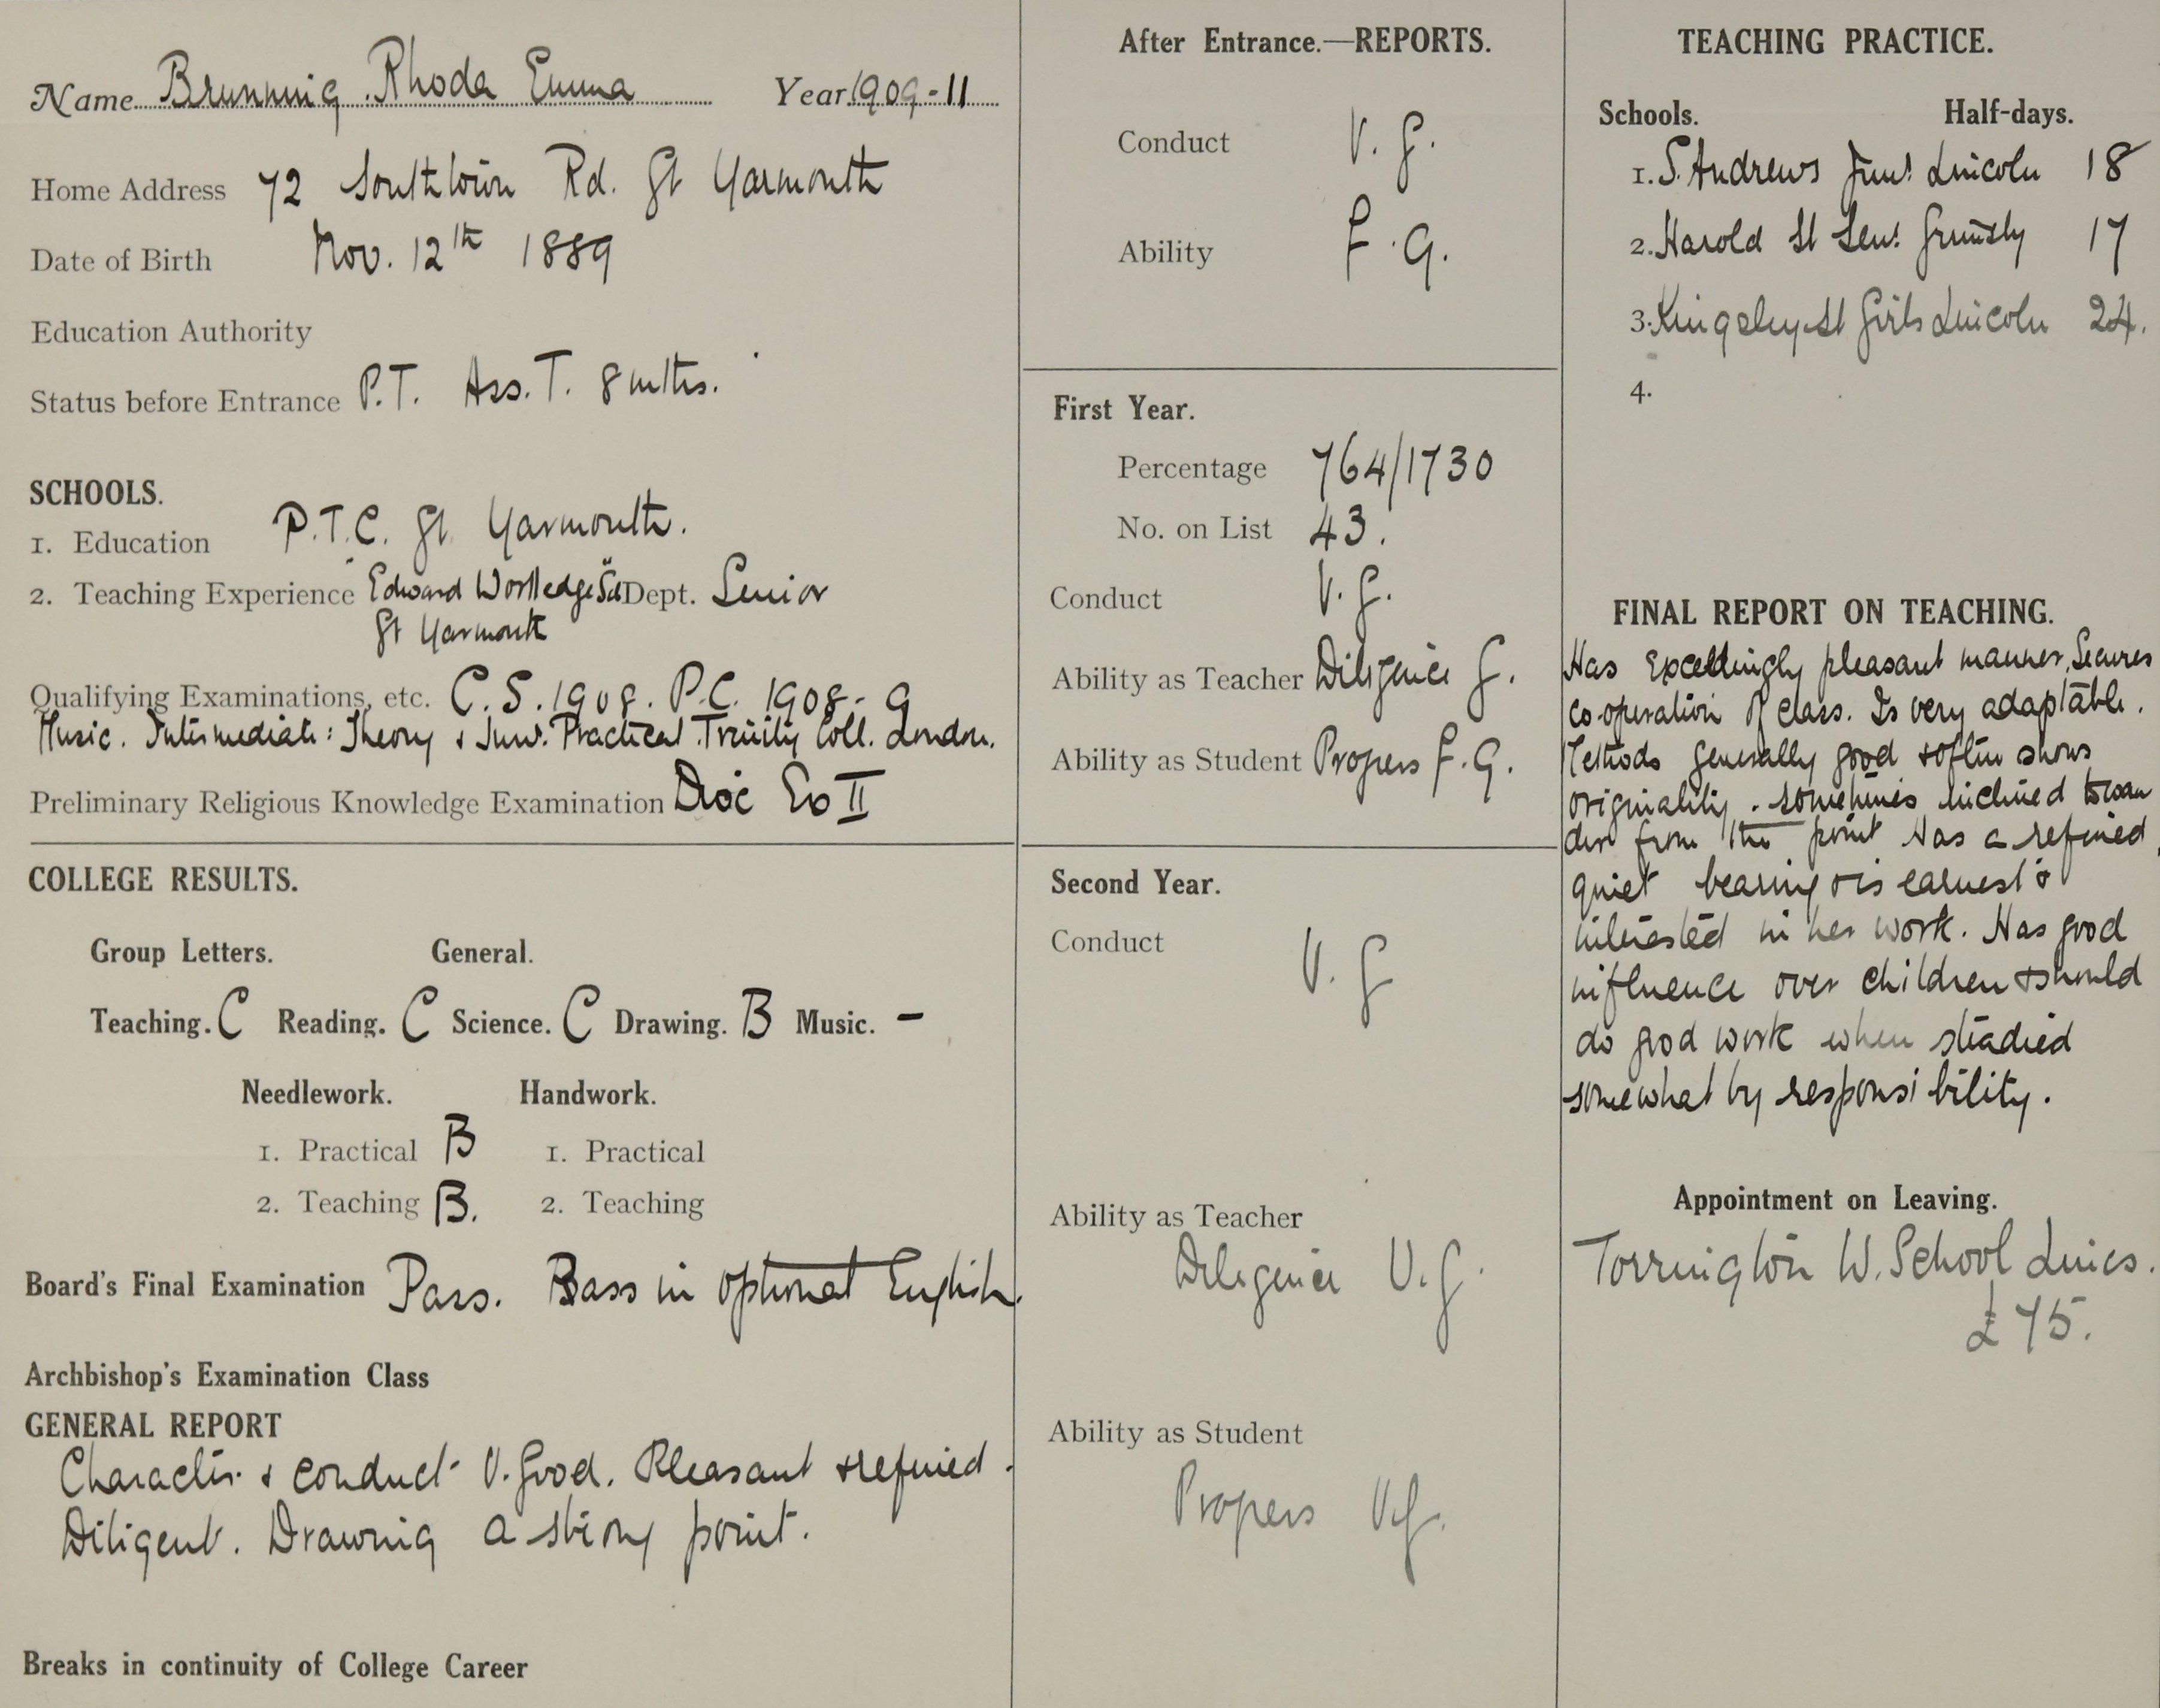 Name Brunning Rhoda Emma Year 1909-11
Home Address 72 Southtown Rd. Gt Yarmouth
Date of Birth Nov. 12th 1889
Education Authority
Status before Entrance P.T. Ass. T. 8 mths.
SCHOOLS.
1. Education P.T.C. Gt Yarmouth.
2. Teaching Experience Edward Worlledge Sch Dept. Senior
Gt Yarmouth
Qualifying Examinations, etc. C.S. 1908. P.C. 1908-9
Music. Intermediate: Theory & Junr. Practical Trinity Coll. London.
Preliminary Religious Knowledge Examination Dioc Ex II
COLLEGE RESULTS.
Group Letters. General.
Teaching. C Reading. C Science. C Drawing. B Music. -
Needlework. Handwork.
1. Practical B 1. Practical
2. Teaching B. 2. Teaching
Board's Final Examination Pass. Pass in optional English.
Archbishop's Examination Class
GENERAL REPORT
Character & conduct V. Good. Pleasant & refined.
Diligent. Drawing a strong point.
Breaks in continuity of College Career
After Entrance.—REPORTS.
Conduct V. G.
Ability F. G.
First Year.
Percentage 764/1730
No. on List 43.
Conduct V. G.
Ability as Teacher Diligence G.
Ability as Student Progress F. G.
Second Year.
Conduct V. G
Ability as Teacher
Diligence V. G.
Ability as Student
Progress V.G.
TEACHING PRACTICE.
Schools. Half-days.
1. S. Andrews Junr Lincoln 18
2. Harold St Senr Grimsby 17
3. Kingsley St Girls Lincoln 24.
4.
FINAL REPORT ON TEACHING.
Has exceedingly pleasant manner, Secures
co-operation of class. Is very adaptable.
Methods generally good & often shows
originality. sometimes inclined to wan
der from the point Has a refined
quiet bearing & is earnest &
interested in her work. Has good
influence over children & should
do good work when steadied
somewhat by responsibility.
Appointment on Leaving.
Torrington W. School Lincs.
£75.